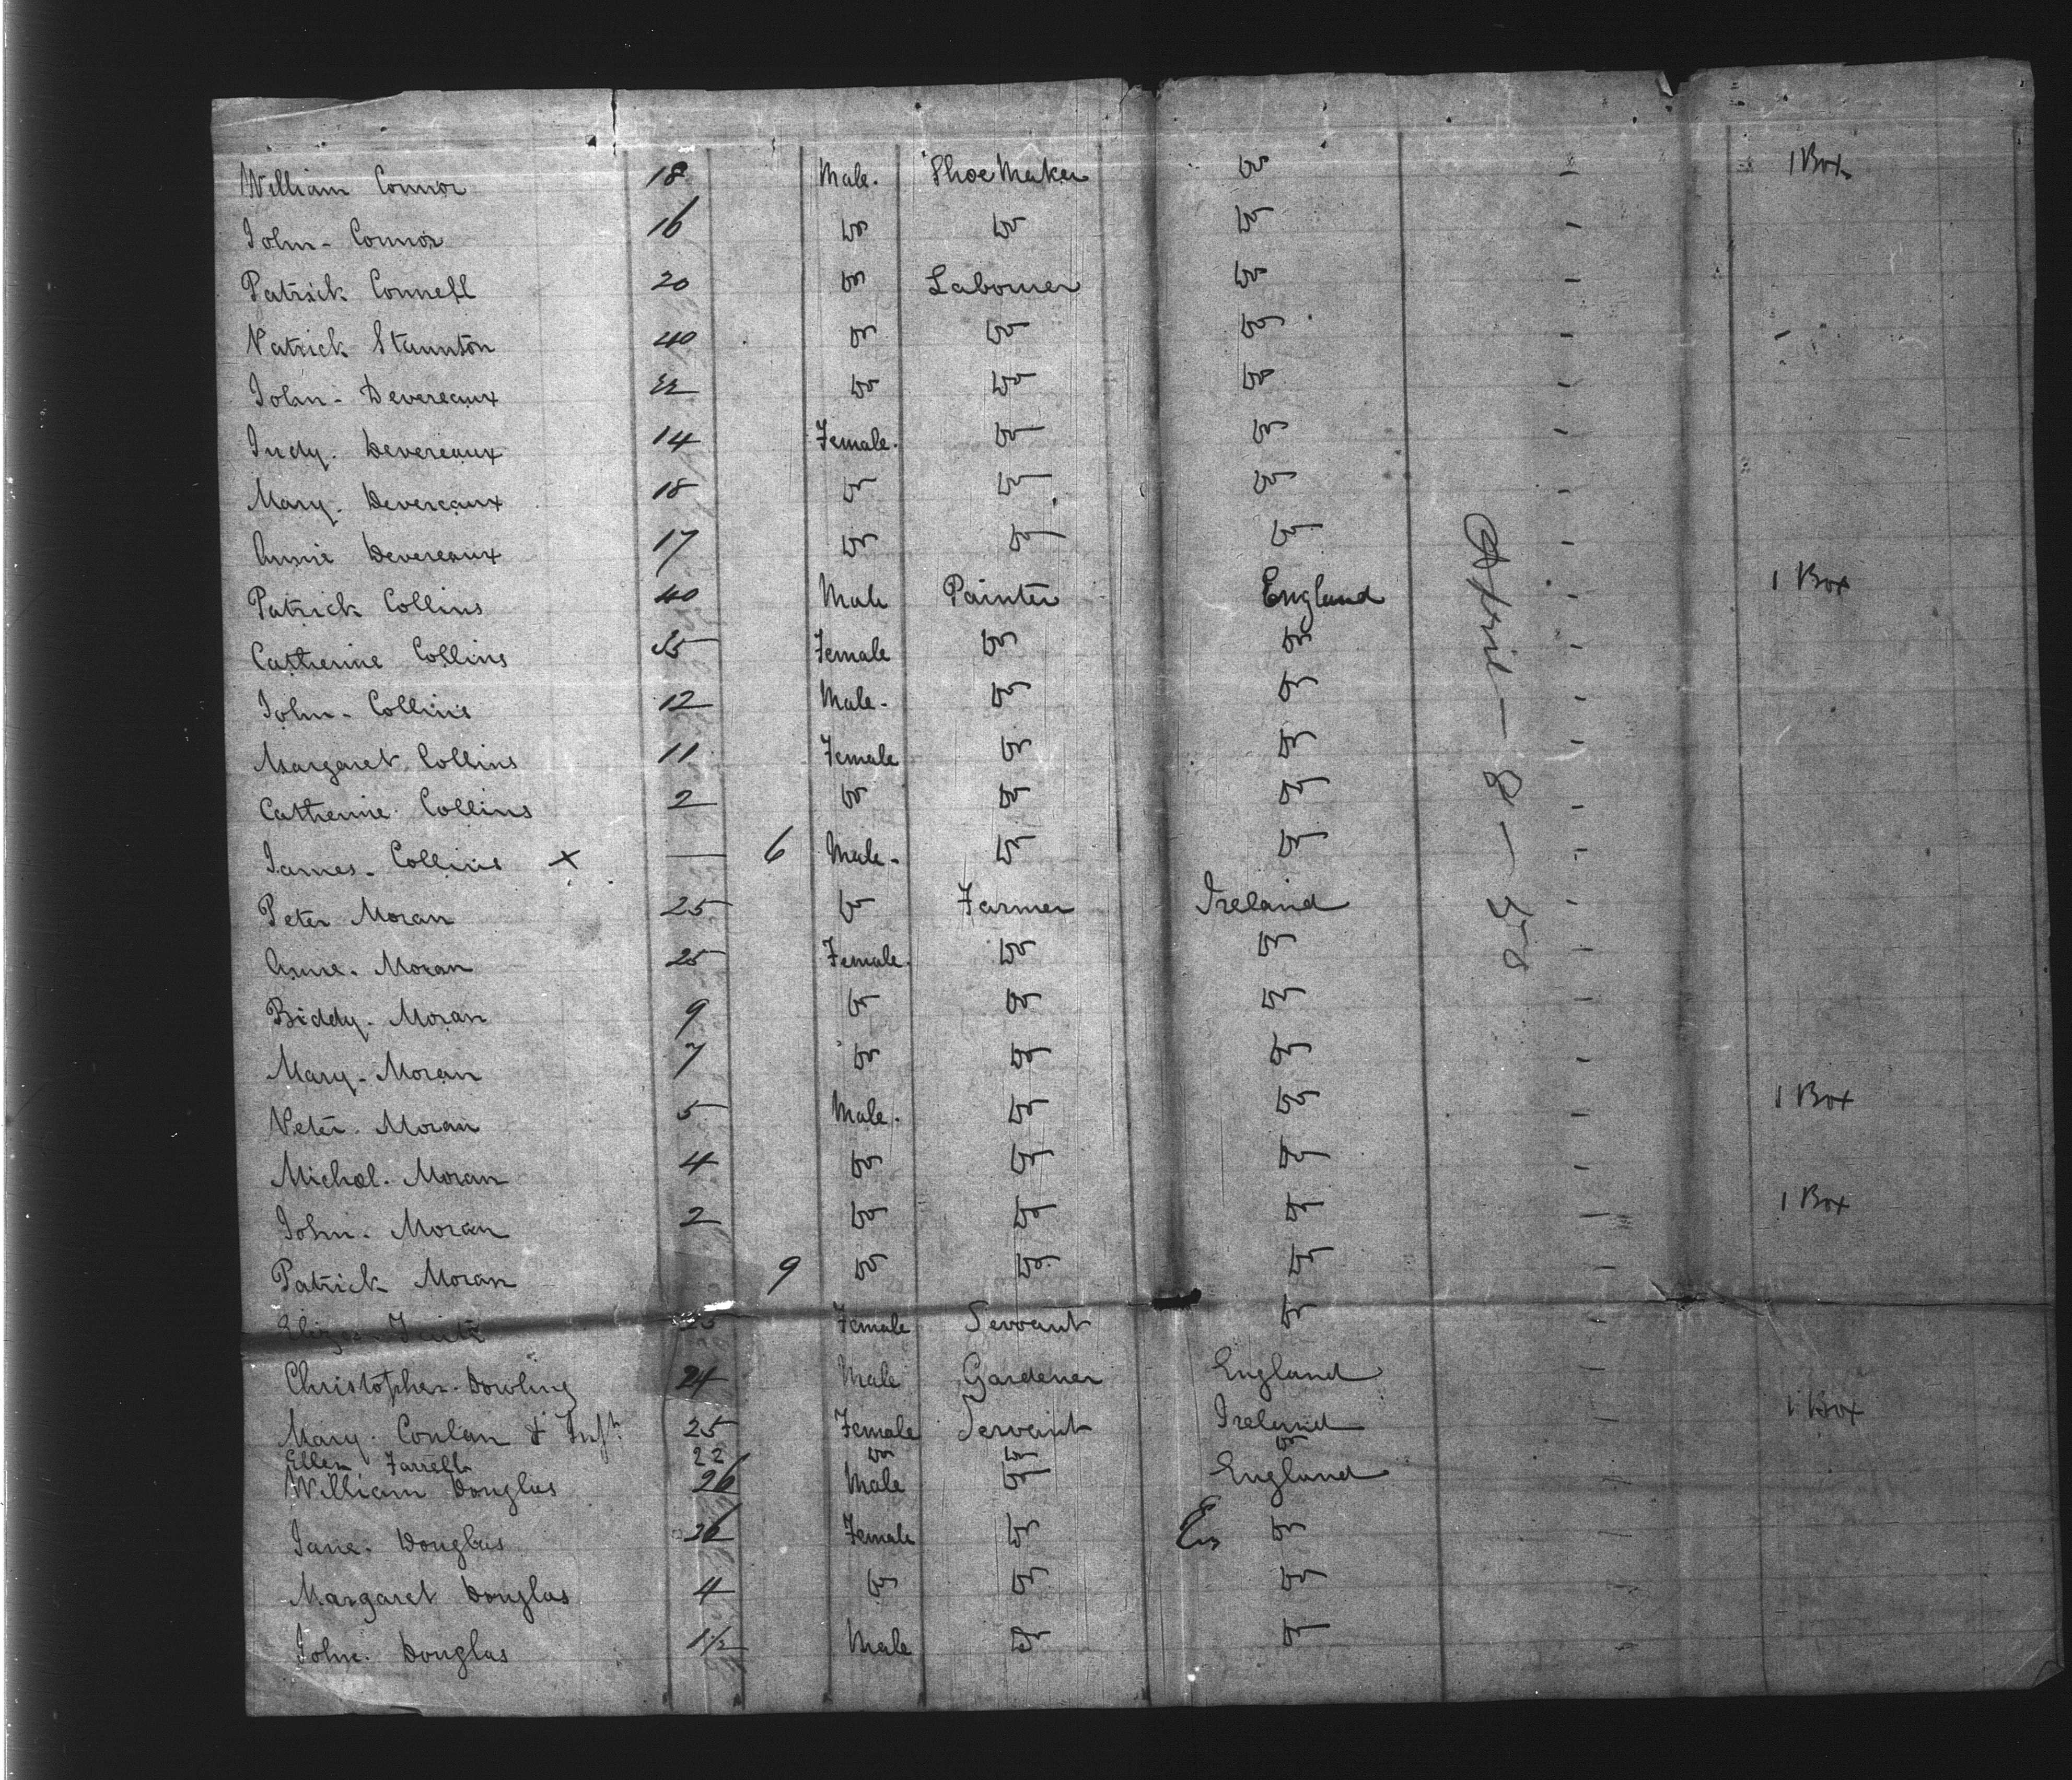 William Connor 18 Male. Shoe Maker Do - 1 Box
John - Connor 16 Do Do Do -
Patrick Connell 20 Do Labourer Do -
Patrick Staunton 40 Do Do Do - -
John - Devereaux 22 Do Do Do -
Judy. Devereaux 14 Female. Do Do -
Mary. Devereaux 18 Do Do Do -
Annie Devereaux 17 Do Do Do -
Patrick Collins 40 Male Painter England - 1 Box
Catherine Collins 35 Female Do Do -
John - Collins 12 Male - Do Do -
Margaret. Collins 11 Female Do Do -
Catherine Collins 2 Do Do Do -
James - Collins x — 6 Male - Do Do -
Peter Moran 25 Do Farmer Ireland -
Anne. Moran 25 Female. Do Do -
Biddy. Moran 9 Do Do Do -
Mary - Moran 7 Do Do Do -
Peter. Moran 5 Male. Do Do - 1 Box
Michal. Moran 4 Do Do Do -
John. Moran 2 Do Do Do - 1 Box
Patrick Moran 9 Do Do Do -
Female Servant Do -
Christopher. Dowling 24 Male Gardener England -
Mary. Conlan & Inft 25 Female Servant Ireland - 1 Box
Ellen Farrell 22 Do Do Do
William Douglas 26 Male Do England -
Jane. Douglas 26 Female Do En Do -
Margaret Douglas 4 Do Do Do -
John. Douglas 1 1/2 Male Do Do -
April - 8 -